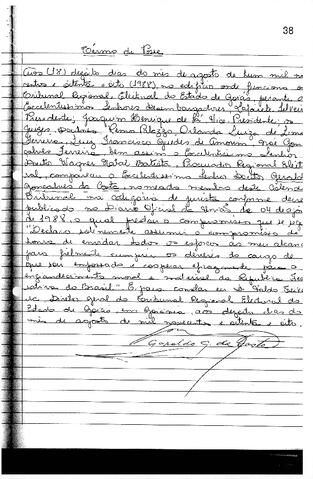 38
Têrmo de Posse
Aos (18) dezoito dias do mês de agosto de hum mil no
centos e oitenta e oito (1988), no edifício onde funciona o
Tribunal Regional Eleitoral do Estado de Goiás, perante o
Excelentíssimos Senhores Desembargadores Lafaiete Silveira
Presidente; Joaquim Henrique de Sá, Vice-Presidente; os
Juízes, Doutores Remo Palazzo, Orlanda Luiza de Lima
Ferreira, Luiz Francisco Guedes de Amorim,
Ferreira bem assim o Excelentíssimo Senhor
Doutor Wagner Natal Batista, Procurador Regional Eleit
ral, compareceu o Excelentíssimo Senhor Doutor Geraldo
Gonçalves da Costa, nomeado membro deste Colendo
Tribunal na categoria de jurista conforme decre
publicado no Diário Oficial da União de 04 de ago
de 1988, o qual prestou o compromisso que se segue
"Declaro solenemente assumir o compromisso de
honra de envidar todos os esforços ao meu alcance
para fielmente cumprir os deveres do cargo de
que sou empossado e cooperar eficazmente para o
engrandecimento moral e material da República Fede
rativa do Brasil". E, para constar eu
Diretor Geral do Tribunal Regional Eleitoral do
Estado de Goiás em Goiânia, aos dezoito dias do
mês de agosto de mil novecentos e oitenta e oito.
Geraldo G. da Costa